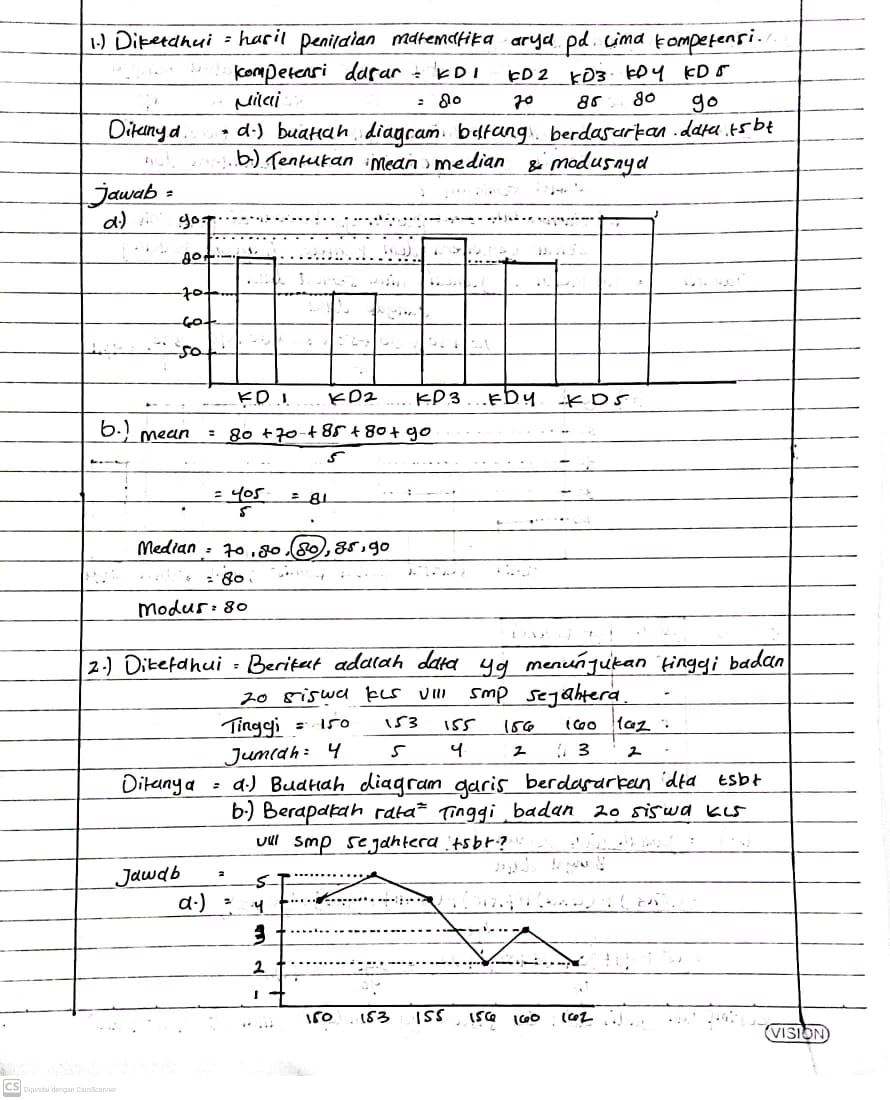 1.) Diketahui = hasil penilaian matematika arya pd lima kompetensi.
kompetensi dasar = KD1 KD2 KD3 KD4 KD5
Nilai = 80 70 85 80 90
Ditanya = a.) buatlah diagram batang berdasarkan data tsbt
b.) Tentukan mean, median & modusnya
Jawab =
a.) 90
80
70
60
50
KD 1 KD2 KD3 KD4 KD5
b.) mean = 80 + 70 + 85 + 80 + 90
5
= 405 = 81
5
Median = 70, 80, 80, 85, 90
= 80
Modus = 80
2.) Diketahui = Berikut adalah data yg menunjukan tinggi badan
20 siswa kls VIII smp sejahtera.
Tinggi = 150 153 155 156 160 162
Jumlah = 4 5 4 2 3 2
Ditanya = a.) Buatlah diagram garis berdasarkan dta tsbt
b.) Berapakah rata= Tinggi badan 20 siswa kls
VIII smp sejahtera tsbt?
Jawab =
a.) = 5
4
3
2
1
150 153 155 156 160 162
VISION
CS Dipindai dengan CamScanner